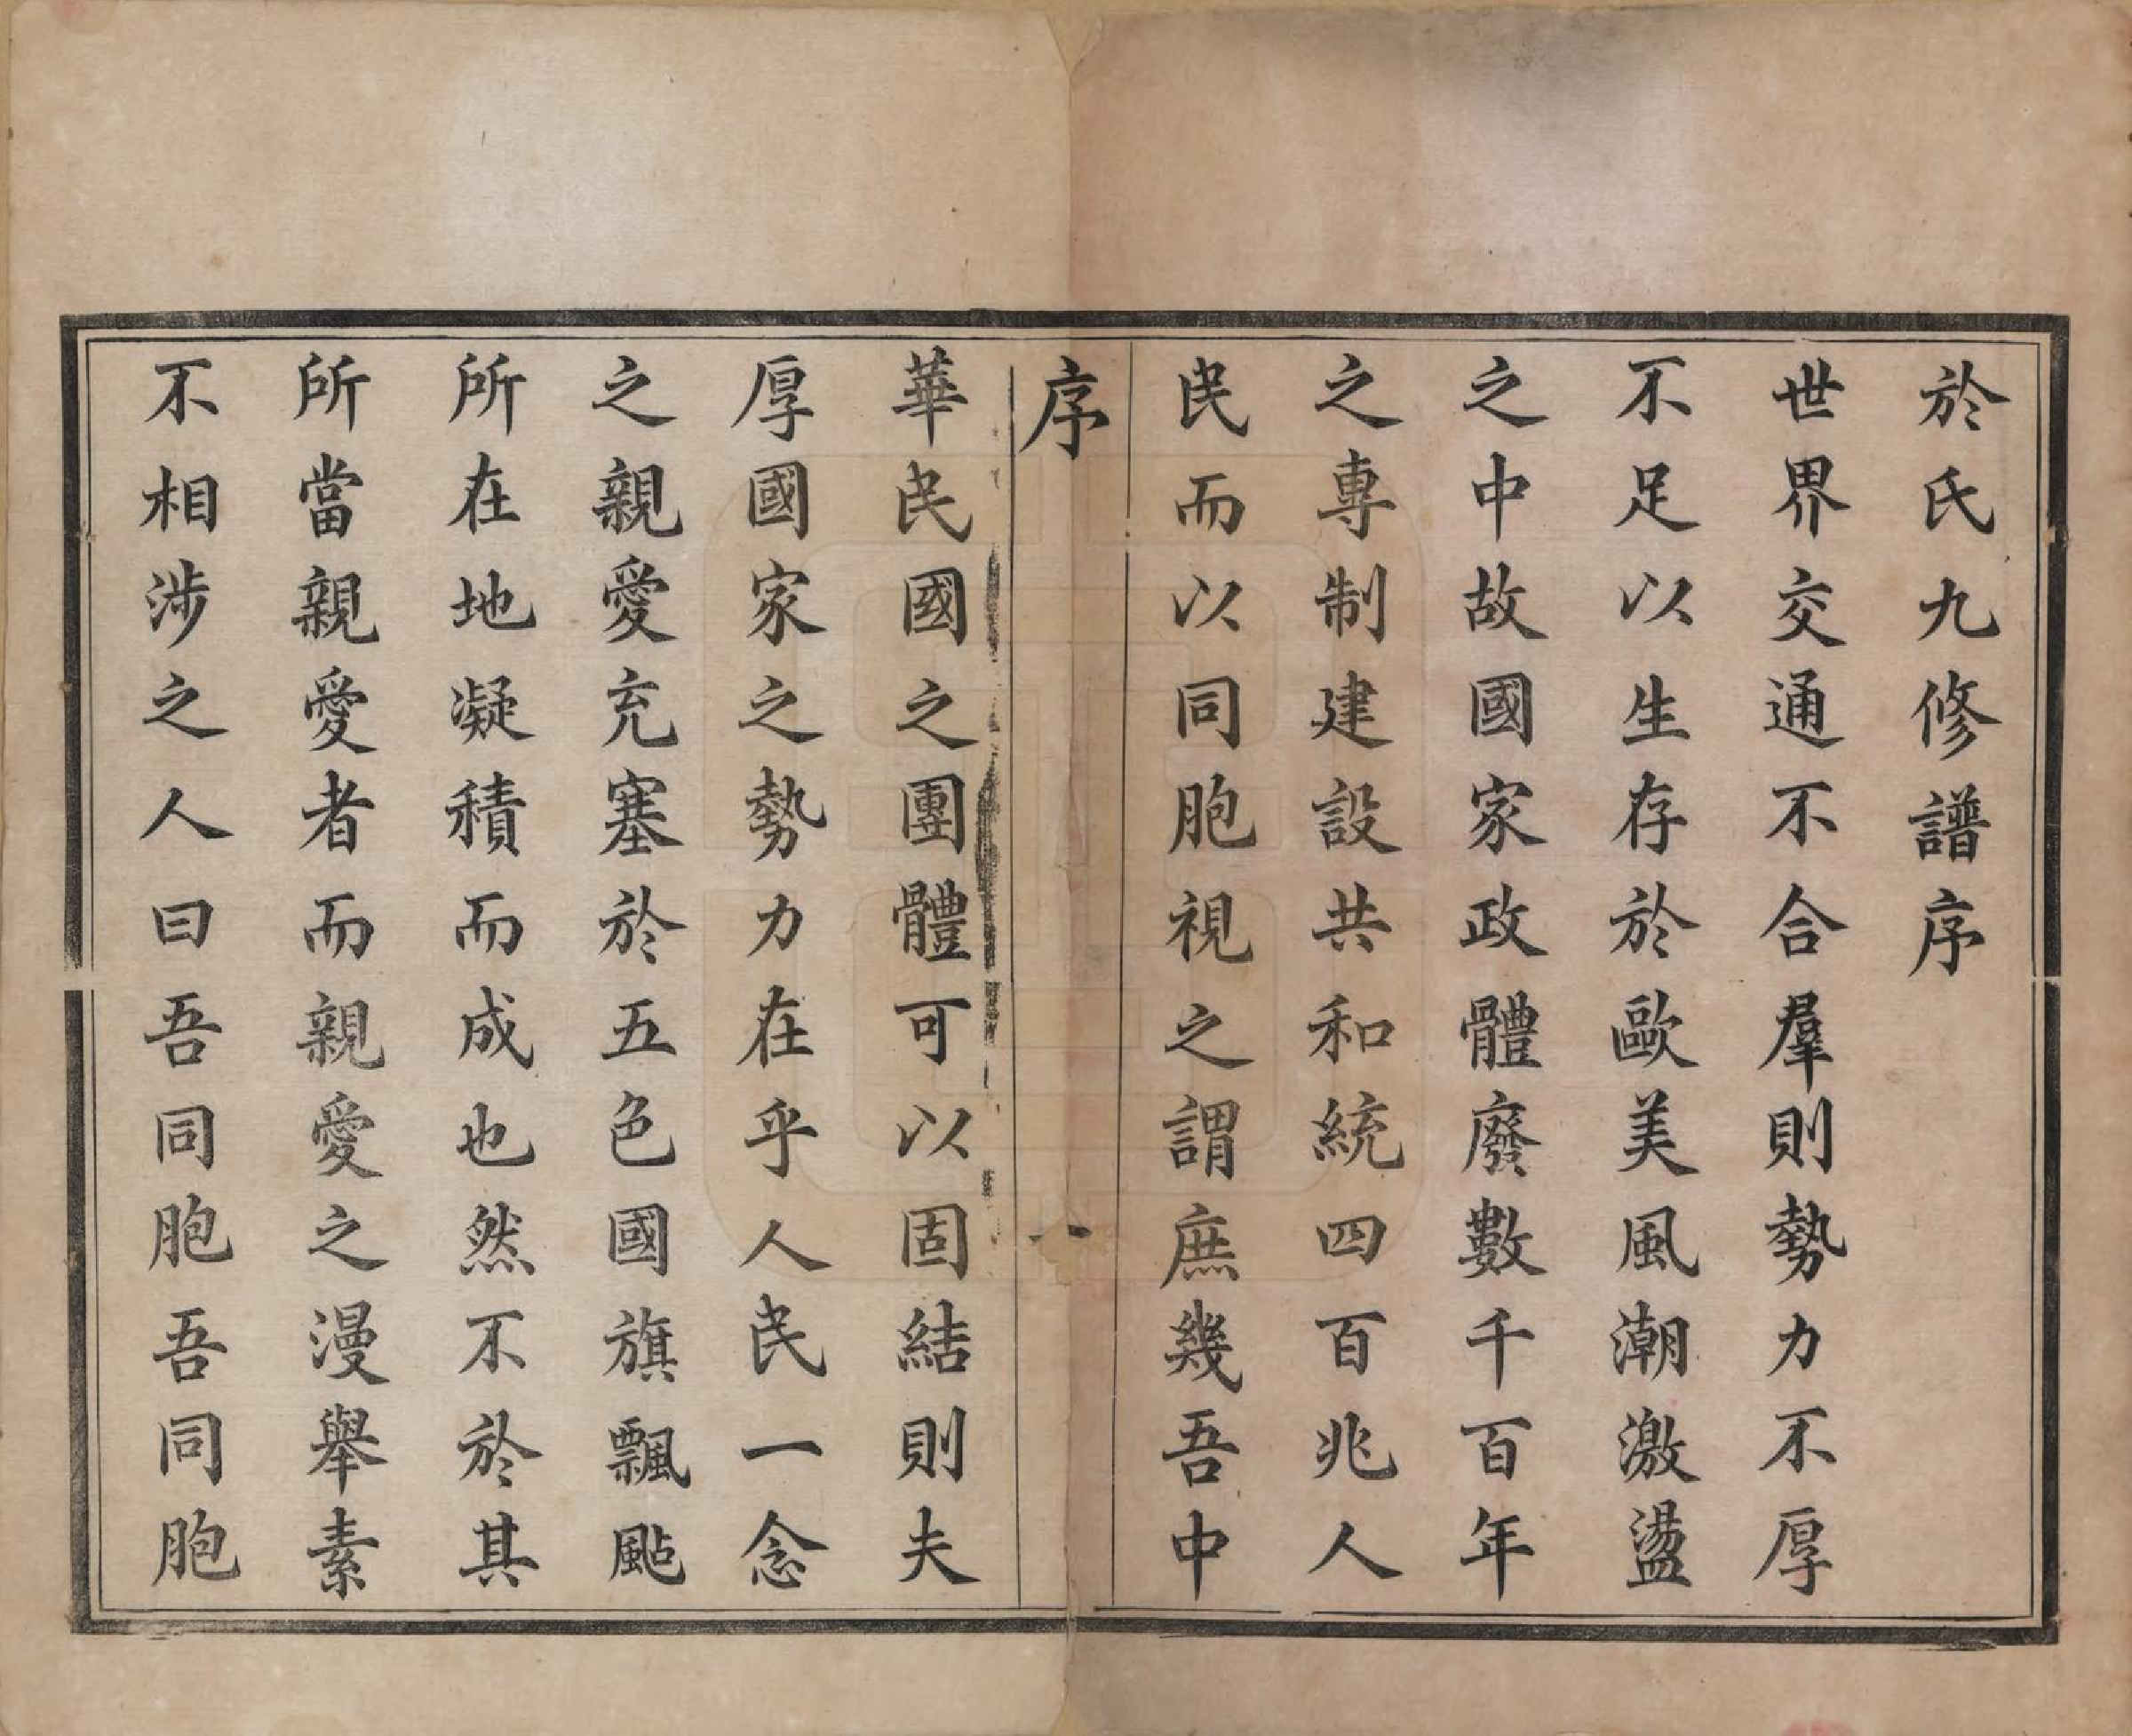 於氏九修譜序
世界交通不合羣則勢力不厚
不足以生存於歐美風潮激盪
之中故國家政體廢數千百年
之專制建設共和統四百兆人
民而以同胞視之謂庶幾吾中
序
華民國之團體可以固結則夫
厚國家之勢力在乎人民一念
之親愛充塞於五色國旗飄颭
所在地凝積而成也然不於其
所當親愛者而親愛之漫舉素
不相涉之人曰吾同胞吾同胞